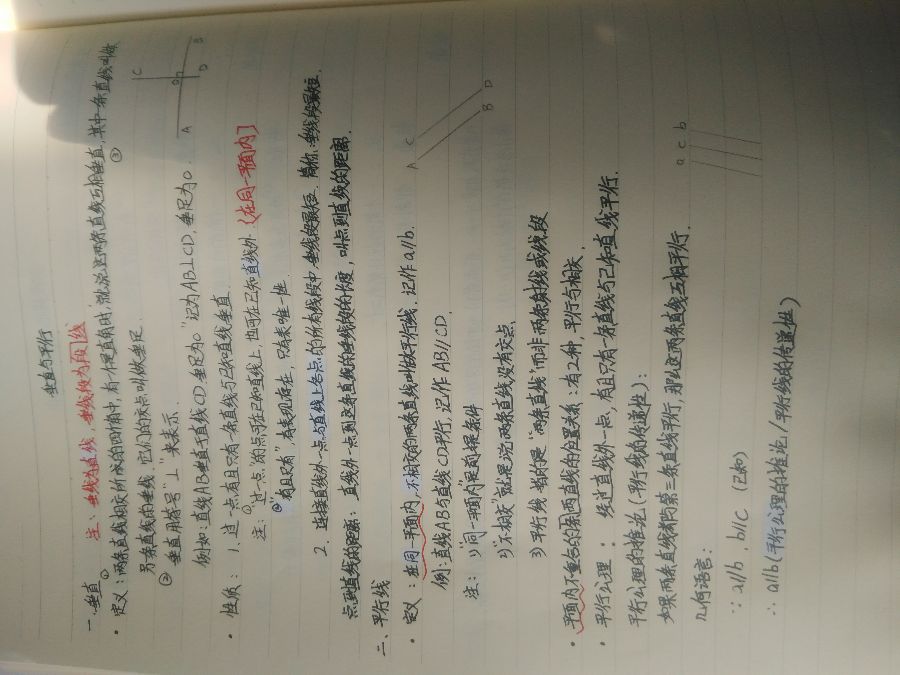 垂直与平行
一、垂直 注:垂线为直线,垂线段为线段
• 定义:①两条直线相交所成的四个角中,有一个是直角时,就说这两条直线互相垂直,其中一条直线叫做
另一条直线的垂线,它们的交点叫做垂足.③
② 垂直用符号"⊥"来表示
例如:直线AB垂直于直线CD垂足为O"记为AB⊥CD,垂足为O.
A B C D O
• 性质:1.过一点有且只有一条直线与已知直线垂直
注:①"过一点"的点可在已知直线上,也可在已知直线外.{在同一平面内}
②"有且只有"有表现存在,只有表唯一性
2.连接直线外一点与直线上各点的所有线段中,垂线段最短.简称:垂线段最短.
点到直线的距离:直线外一点到这条直线的垂线段的长度,叫点到直线的距离.
二、平行线
• 定义:在同一平面内,不相交的两条直线叫做平行线.记作a//b.
例:直线AB与直线CD平行,记作AB//CD.
A B C D
注:1)"同一平面内"是前提条件
2)"不相交"就是说两条直线没有交点.
3)平行线指的是"两条直线"而非两条射线或线段
• 平面内不重合的两直线的位置关系:有2种,平行与相交
• 平行公理:经过直线外一点,有且只有一条直线与已知直线平行.
平行公理的推论(平行线的传递性):
如果两条直线都与第三条直线平行,那么这两条直线互相平行.
几何语言:
a c b
∵a//b,b//c(已知)
∴a//b(平行公理的推论/平行线的传递性)